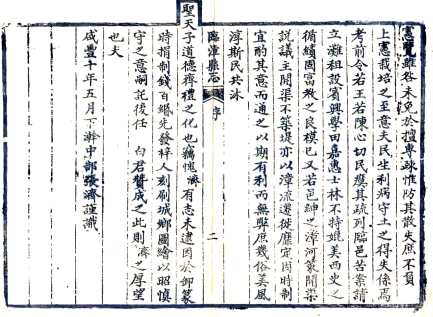 憲覽雖咎未免於擅專疎惟防其散失庶不負
上憲栽培之至意夫民生利病守土之得失係焉
考前令若王若陳心切民瘼其疏列臨邑苦累請
立灘租設賓興學田嘉惠士林不特媲美西史之
循績固富教之良模已又若邑紳之漳河策開渠
說議主開渠不築堤亦以漳流遷徙靡定因時制
宜酌其意而通之以期有利而無弊庶幾俗美風
淳斯民共沐
臨漳縣志 序 二
聖天子道德齊禮之化也竊愧濟有志未逮因於卸篆
時捐制錢百緡先發梓人刻刷城鄉圖繪以昭慎
守之意嗣託後任 白君贊成之此則 濟 之厚望
也夫
咸豐十年五月下澣中部張濟謹識